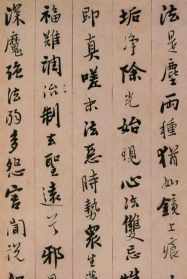 法是塵兩種猶如鏡上痕
垢淨除光始現心法雙忘
即真嗟末法惡時勢眾生
福難調治制去聖遠兮邪
深魔強法弱多怨害聞說如